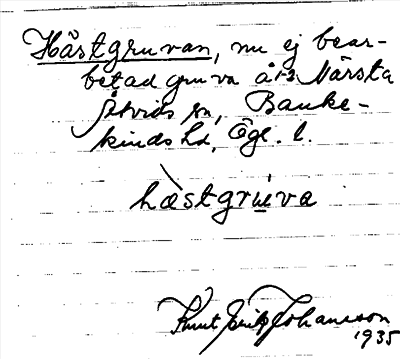 Hästgruvan, nu ej bear-
betad gruva å 1-3 Närsta
Åtvids sn, Banke-
kinds hd, Ög. l.
hàstgru̱va
Knut Erik Johansson
1935